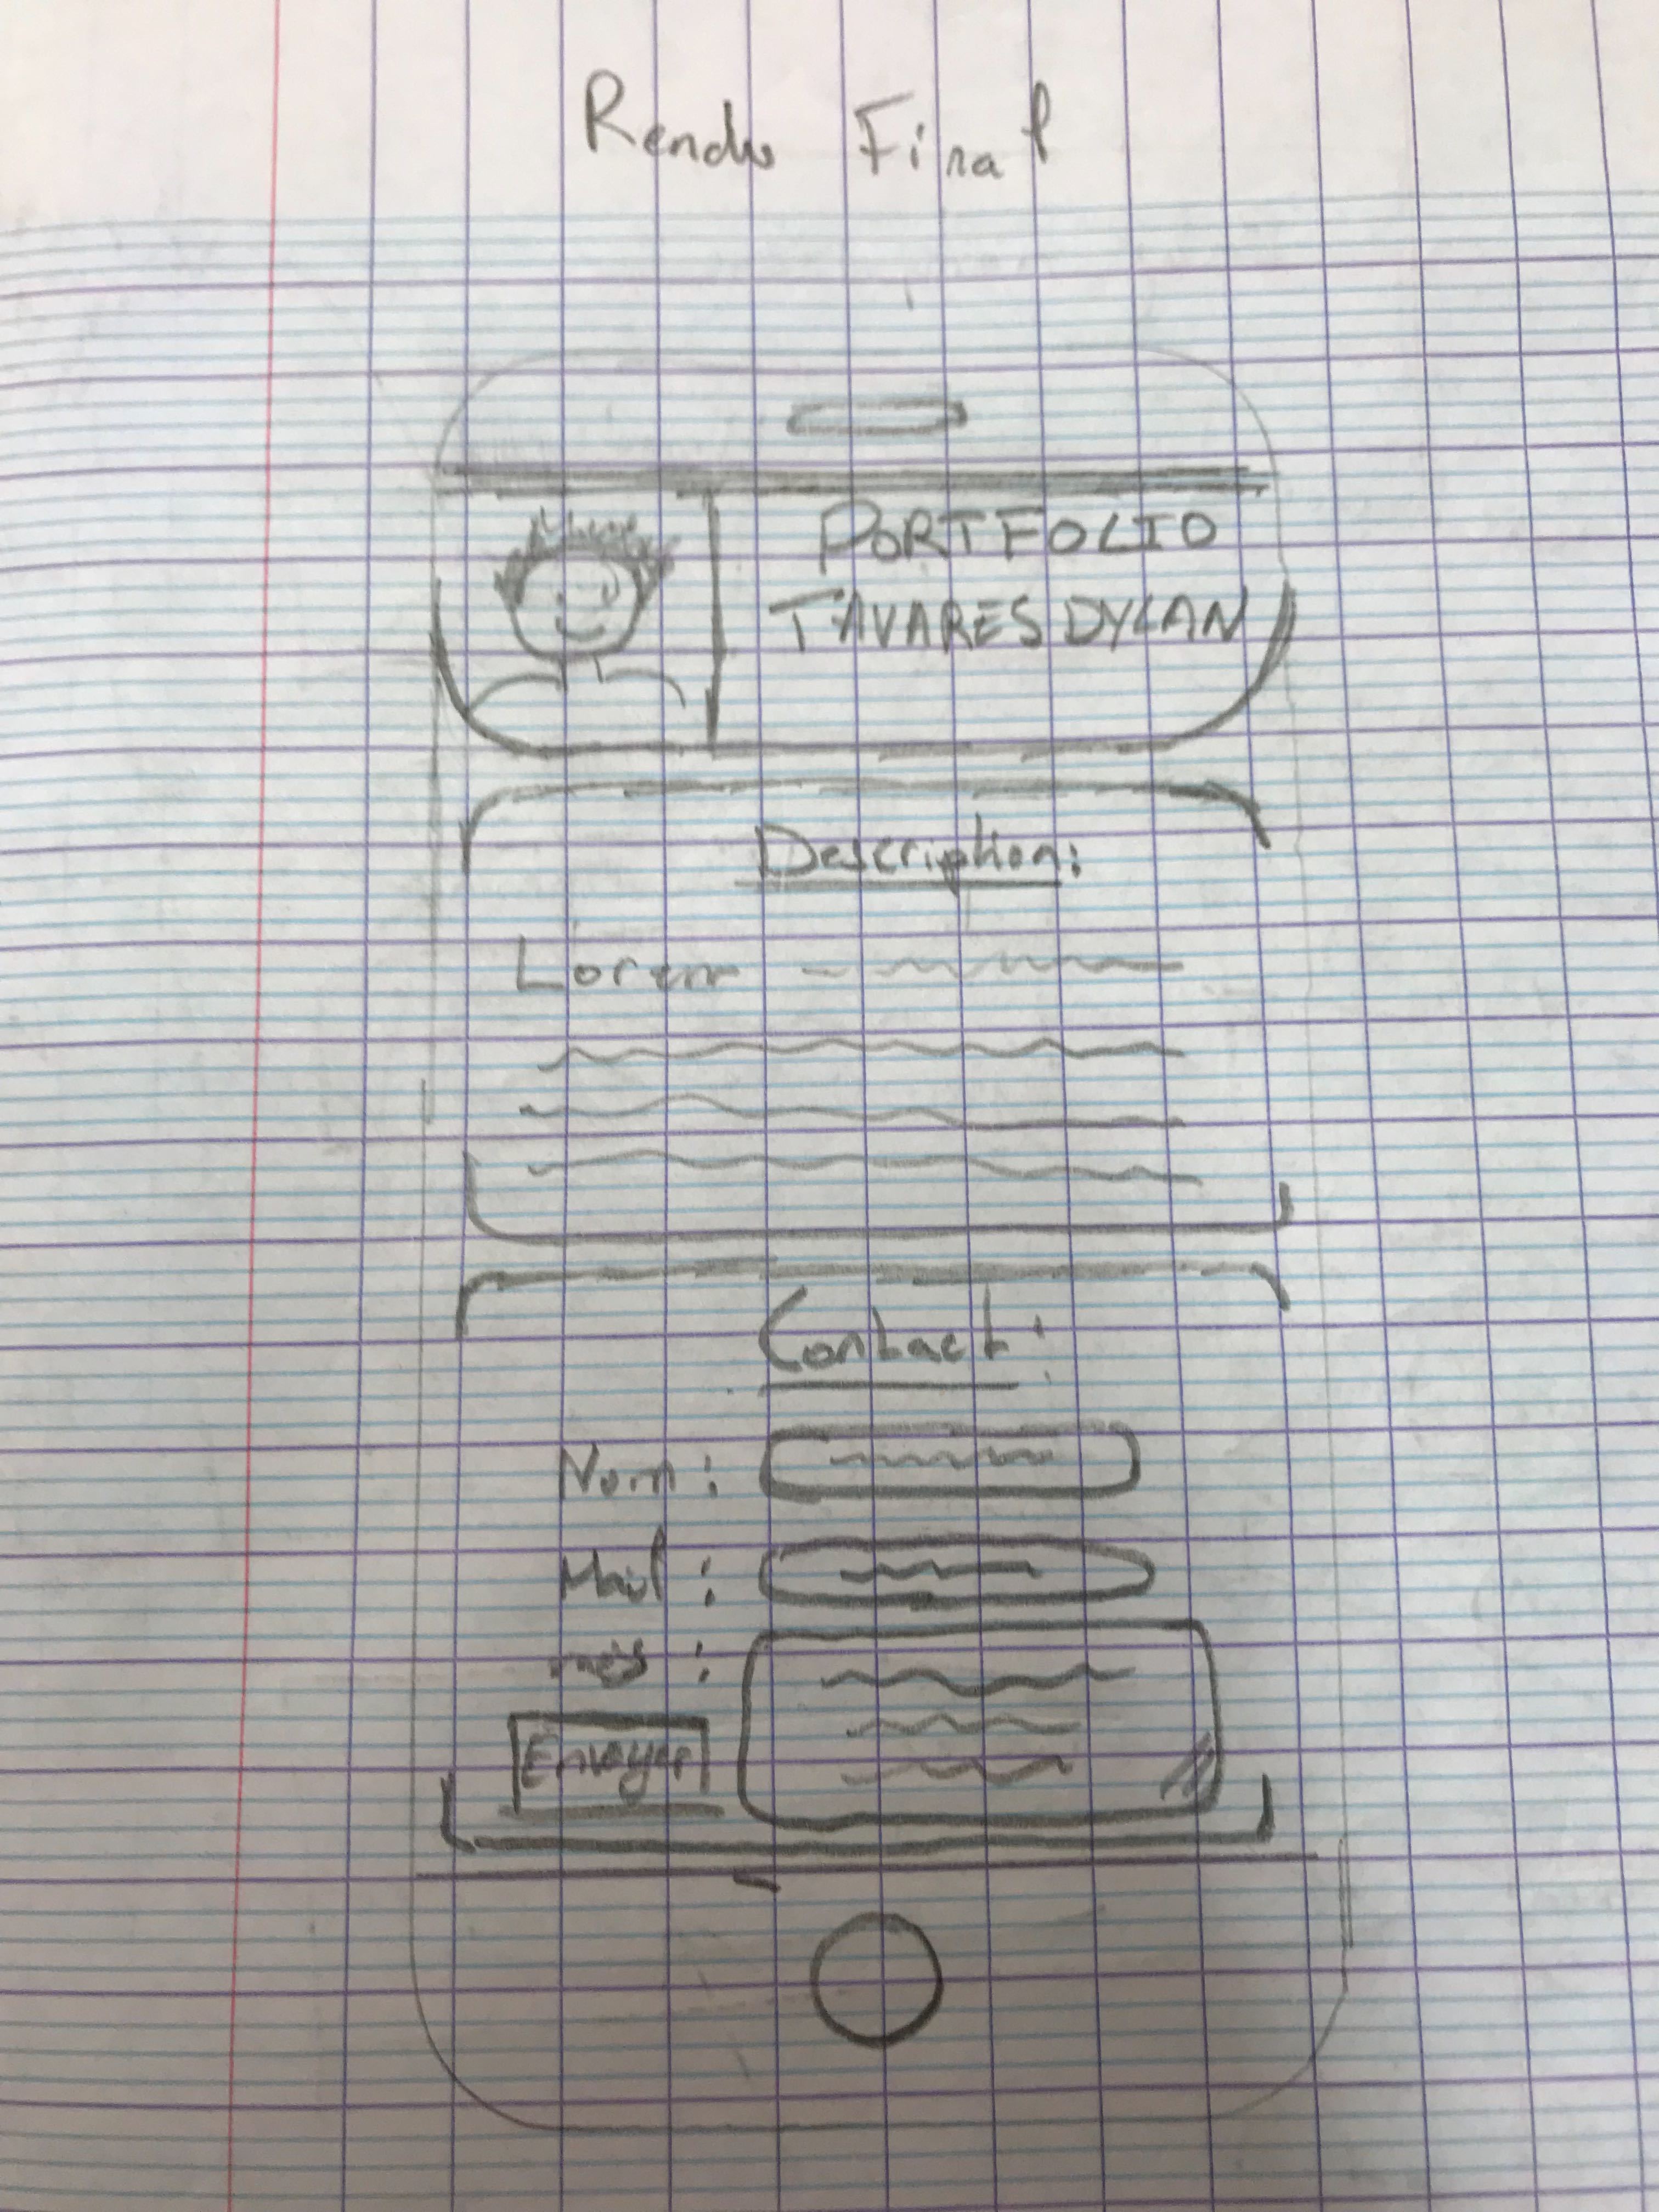 Rendu Final
PORTFOLIO
TAVARES DYLAN
Description:
Lorem
Contact:
Nom:
Mail:
mes:
Envoyer